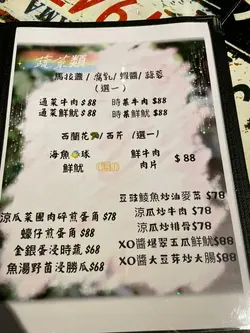 蔬菜類
馬拉盞/腐乳/蝦醬/蒜蓉
(選一)
通菜牛肉$88 時菜牛肉$88
通菜鮮魷$88 時菜鮮魷$88
西蘭花🥦/西芹 (選一)
海魚球 鮮牛肉
鮮魷 肉片 $88
豆豉鯪魚炒油麥菜 $78
涼瓜菜圃肉碎煎蛋角$78 涼瓜炒牛肉 $78
蠔仔煎蛋角$88 涼瓜炒排骨$78
金銀蛋浸時蔬$68 XO醬爆翠玉瓜鮮魷$88
魚湯野苗浸勝瓜$68 XO醬大豆芽炒大腸$88